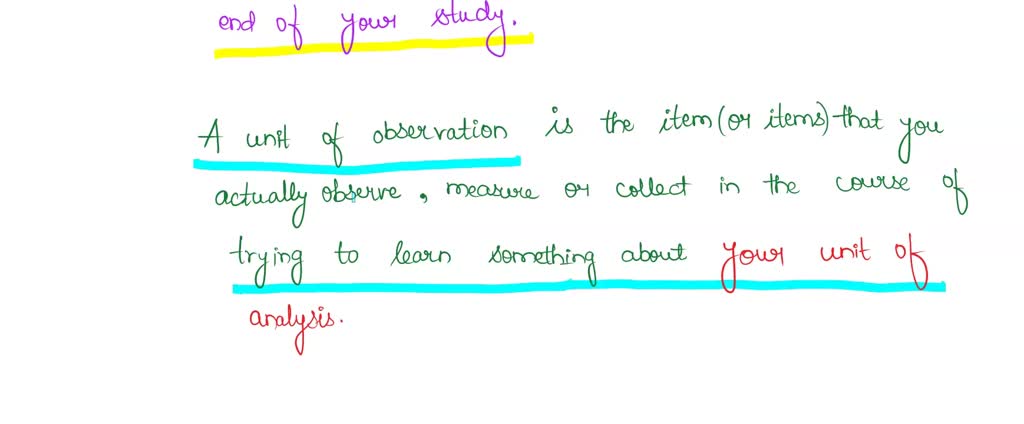 end of your study.
A unit of observation is the item (or items) that you
actually observe, measure or collect in the course of
trying to learn something about your unit of
analysis.